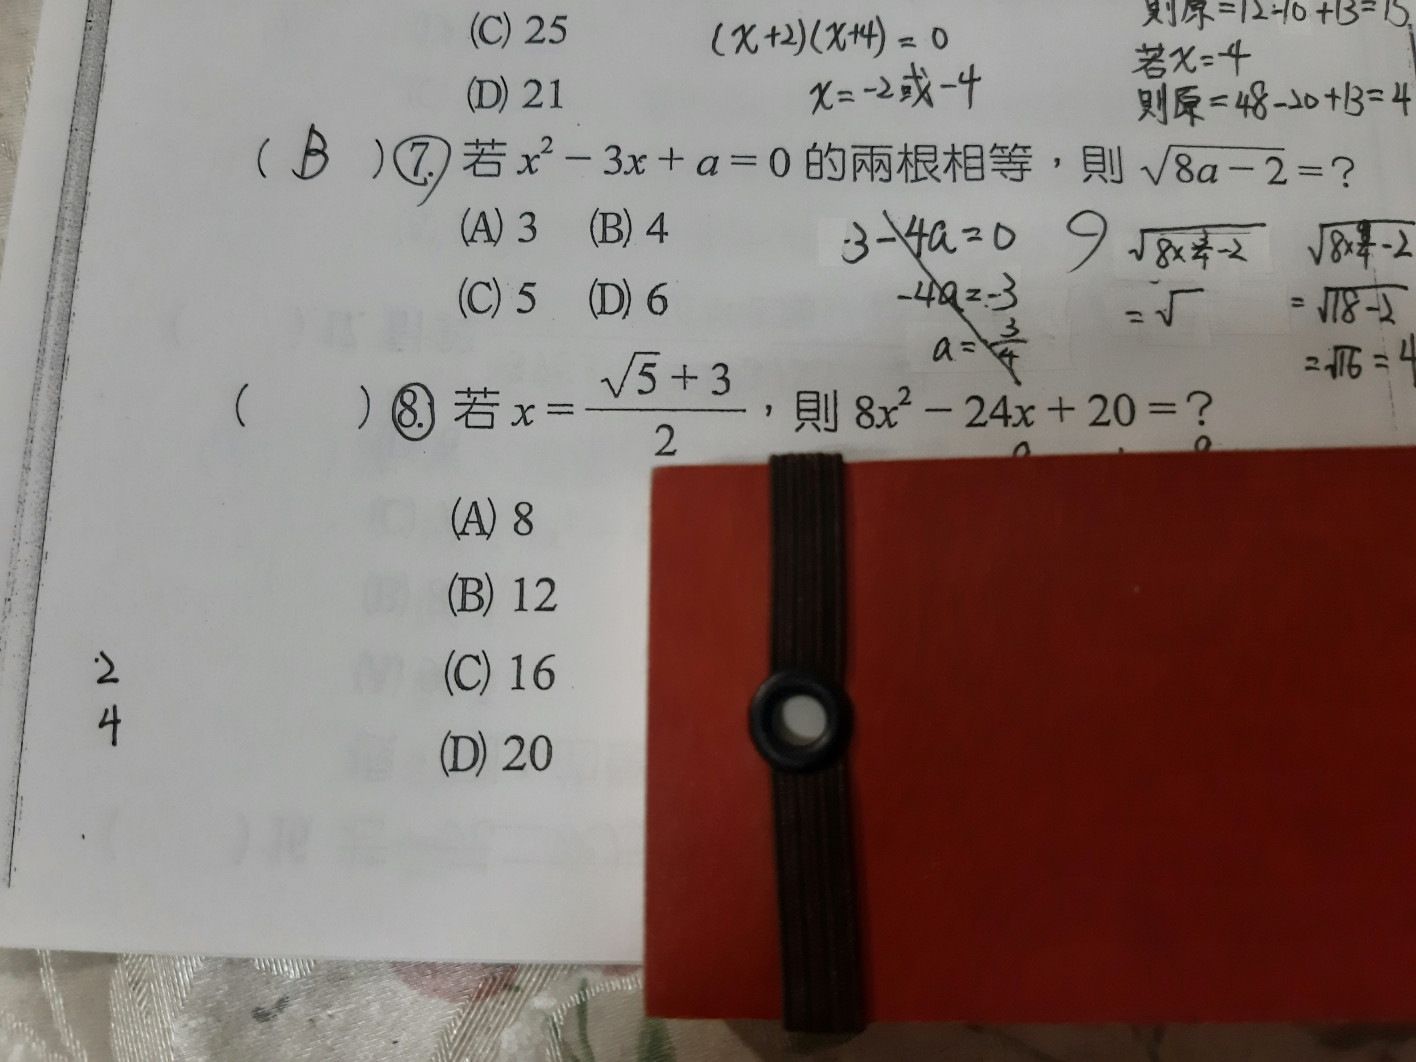 (C) 25
(x+2)(x+4) = 0
則原=12-10+13=15
(D) 21
x=-2或-4
若x=-4
則原=48-20+13=4
( B ) 7. 若 x² − 3x + a = 0 的兩根相等，則 √(8a − 2) = ?
(A) 3 (B) 4
(C) 5 (D) 6
3-4a=0
-4a=-3
a=3/4
9
√(8×3/4-2)
=√
√(8×9/4-2)
=√(18-2)
=√16=4
( ) 8. 若 x = (√5 + 3)/2，則 8x² − 24x + 20 = ?
(A) 8
(B) 12
(C) 16
(D) 20
2
4